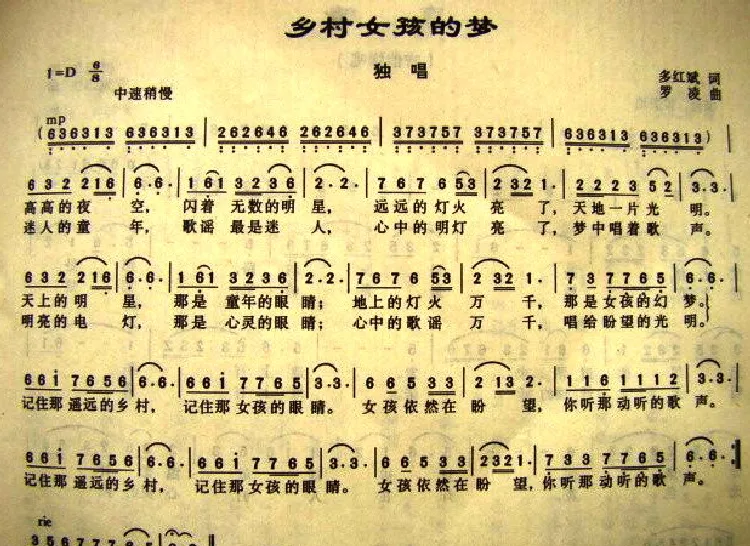 乡村女孩的梦
1=D 6/8
独 唱
多红斌 词
中速稍慢
罗 凌 曲
mp
(636313 636313 | 262646 262646 | 373757 373757 | 636313 636313) |
632 216 | 6· 6· | 161 3236 | 2· 2· | 767 653 | 2321· | 222352 | 3· 3· |
高高的夜 空, 闪着 无数的明 星, 远远的灯火 亮 了, 天地一片光 明。
迷人的童 年, 歌谣 最是迷 人, 心中的明灯 亮 了, 梦中唱着歌 声。
632 216 | 6· 6· | 161 3236 | 2· 2· | 767653 | 2 321· | 733 7765 | 6· 6· |
天上的明 星, 那是 童年的眼 睛; 地上的灯火 万 千, 那是女孩的幻 梦。
明亮的电 灯, 那是 心灵的眼 睛; 心中的歌谣 万 千, 唱给盼望的光 明。
661 7656 | 6· 6· | 661 7765 | 3· 3· | 66 53 33 | 2 132· | 116 1112 | 3· 3· |
记住那 遥远的乡 村, 记住那女孩的眼 睛。 女孩依然在 盼 望, 你听那动听的歌 声。
661 7656 | 6· 6· | 661 7765 | 3· 3· | 66 53 33 | 2321· | 733 7765 | 6· 6· |
记住那 遥远的乡 村, 记住那 女孩的眼 睛。 女孩依然在盼 望, 你听那动听的歌 声。
rie